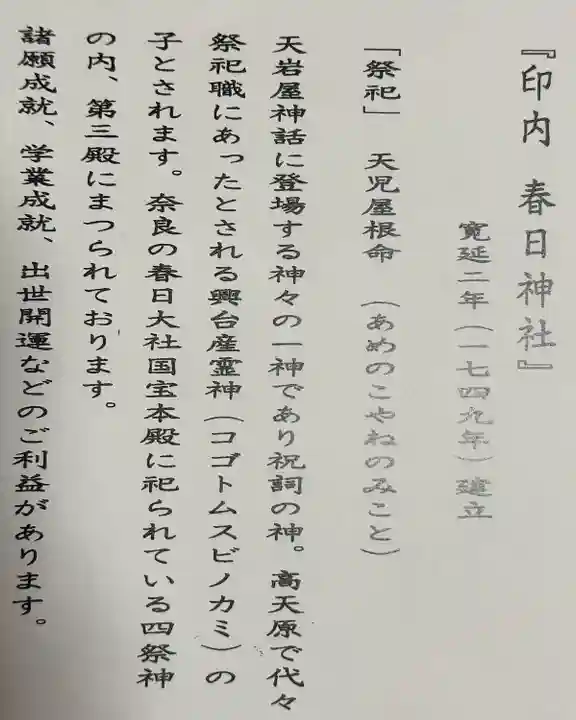 『印内 春日神社』
寛延二年(一七四九年)建立
「祭祀」 天児屋根命 (あめのこやねのみこと)
天岩屋神話に登場する神々の一神であり祝詞の神。高天原で代々
祭祀職にあったとされる興台産霊神(コゴトムスビノカミ)の
子とされます。奈良の春日大社国宝本殿に祀られている四祭神
の内、第三殿にまつられております。
諸願成就、学業成就、出世開運などのご利益があります。